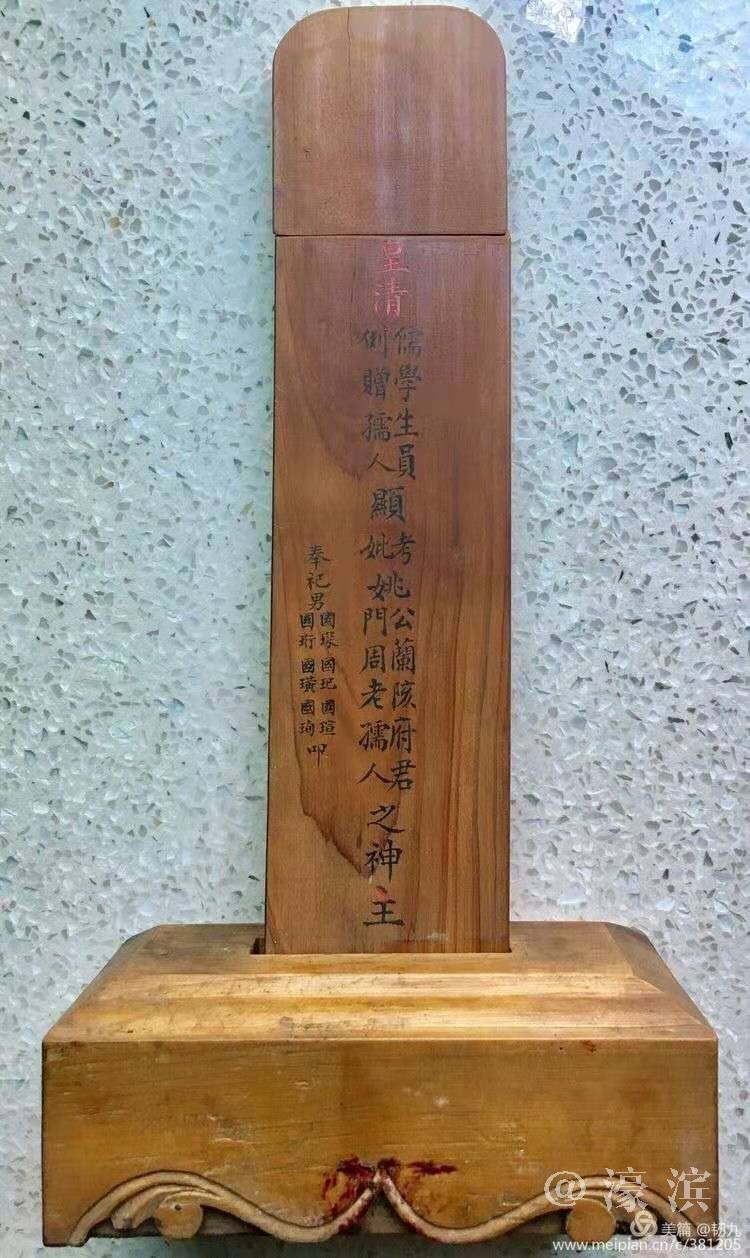 皇清
儒學生員
例贈孺人
顯
考
妣
姚
公蘭陔府君
門周老孺人
之神主
奉祀男
國琛 國玘 國瑄
國珩 國璜 國珣
叩
@濠滨
美篇 @韧九
www.meipian.cn/c/381205